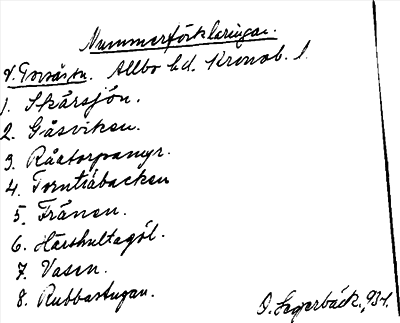 Nummerförklaringar.
V. Torsås sn. Allbo hd. Kronob. l.
1. Skärsjön.
2. Gåsviken.
3. Råatorpamyr.
4. Torntäbacken
5. Fränen.
6. Härshultagöl.
7. Vasen.
8. Rubbastugan.
O. Segerbäck, 934.